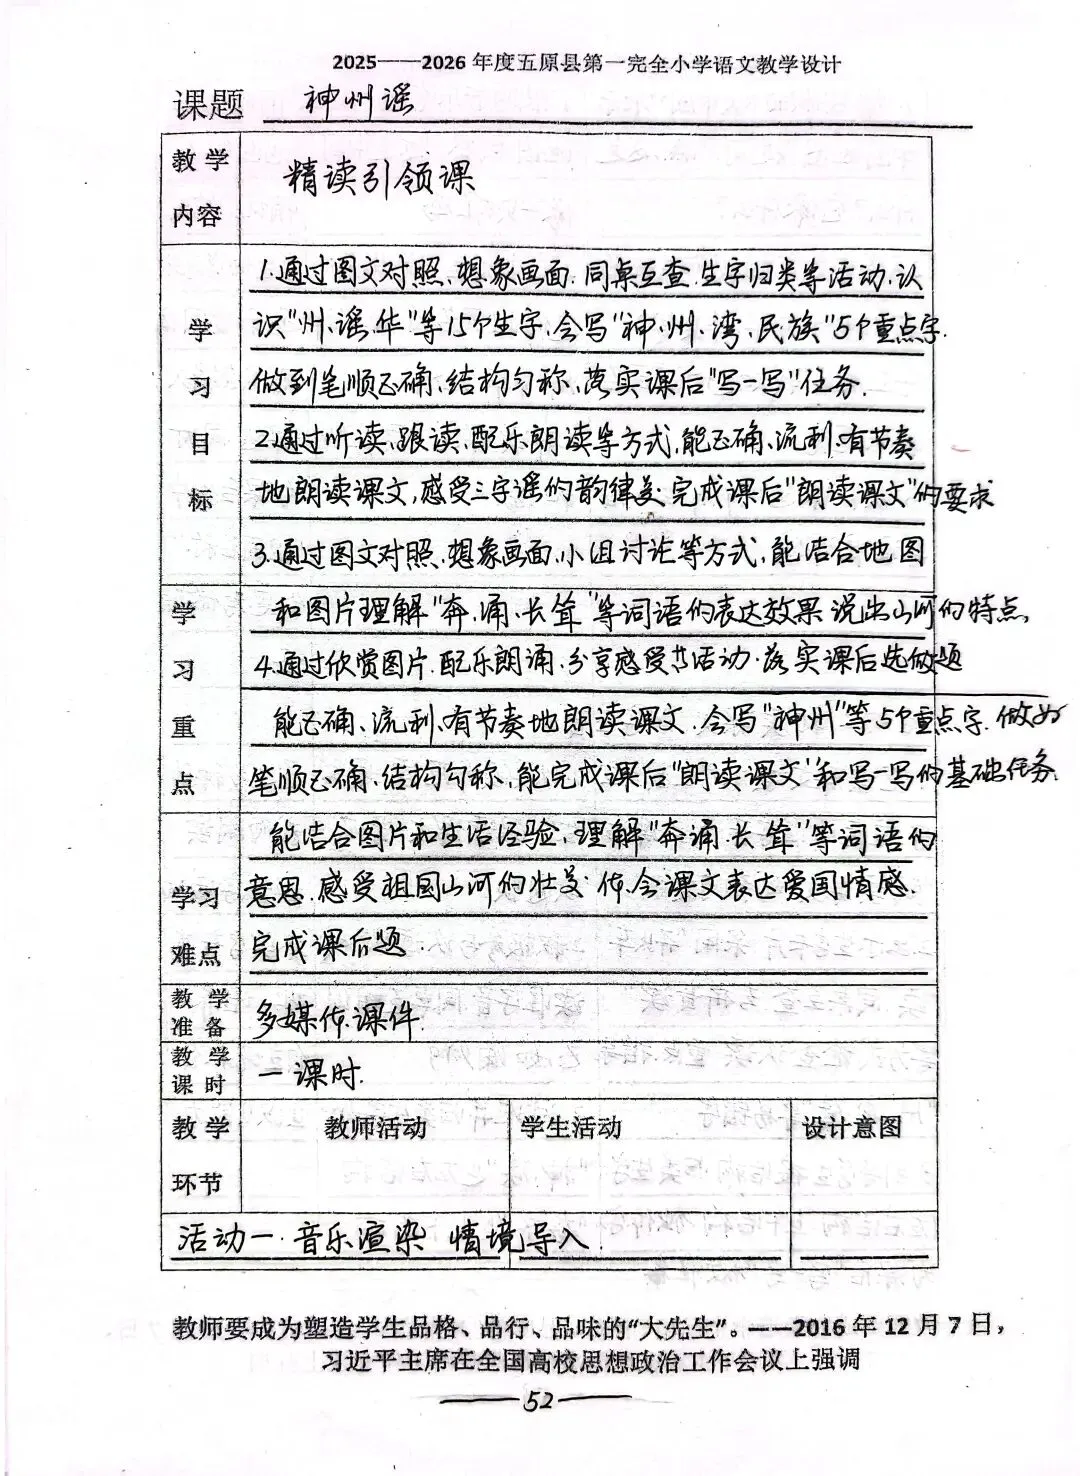 2025——2026年度五原县第一完全小学语文教学设计
课题 神州谣
教学内容 精读引领课
学习目标
1.通过图文对照、想象画面.同桌互查.生字归类等活动.认
识"州、谣、华"等15个生字.会写"神、州、湾、民族"5个重点字.
做到笔顺正确、结构匀称、落实课后"写一写"任务.
2.通过听读、跟读、配乐朗读等方式,能正确、流利、有节奏
地朗读课文,感受三字谣的韵律美.完成课后"朗读课文"的要求
3.通过图文对照.想象画面、小组讨论等方式,能结合地图
和图片理解"奔、涌、长耸"等词语的表达效果 说出山河的特点,
4.通过欣赏图片.配乐朗诵.分享感受等活动.落实课后选做题
学习重点
能正确、流利、有节奏地朗读课文.会写"神州"等5个重点字.做好
笔顺正确、结构匀称,能完成课后"朗读课文"和写一写的基础任务.
学习难点
能结合图片和生活经验,理解"奔涌.长耸"等词语的
意思.感受祖国山河的壮美 体会课文表达爱国情感.
完成课后题.
教学准备 多媒体课件.
教学课时 一课时.
教学环节 教师活动 学生活动 设计意图
活动一.音乐渲染 情境导入.
教师要成为塑造学生品格、品行、品味的"大先生"。——2016年12月7日,
习近平主席在全国高校思想政治工作会议上强调
52